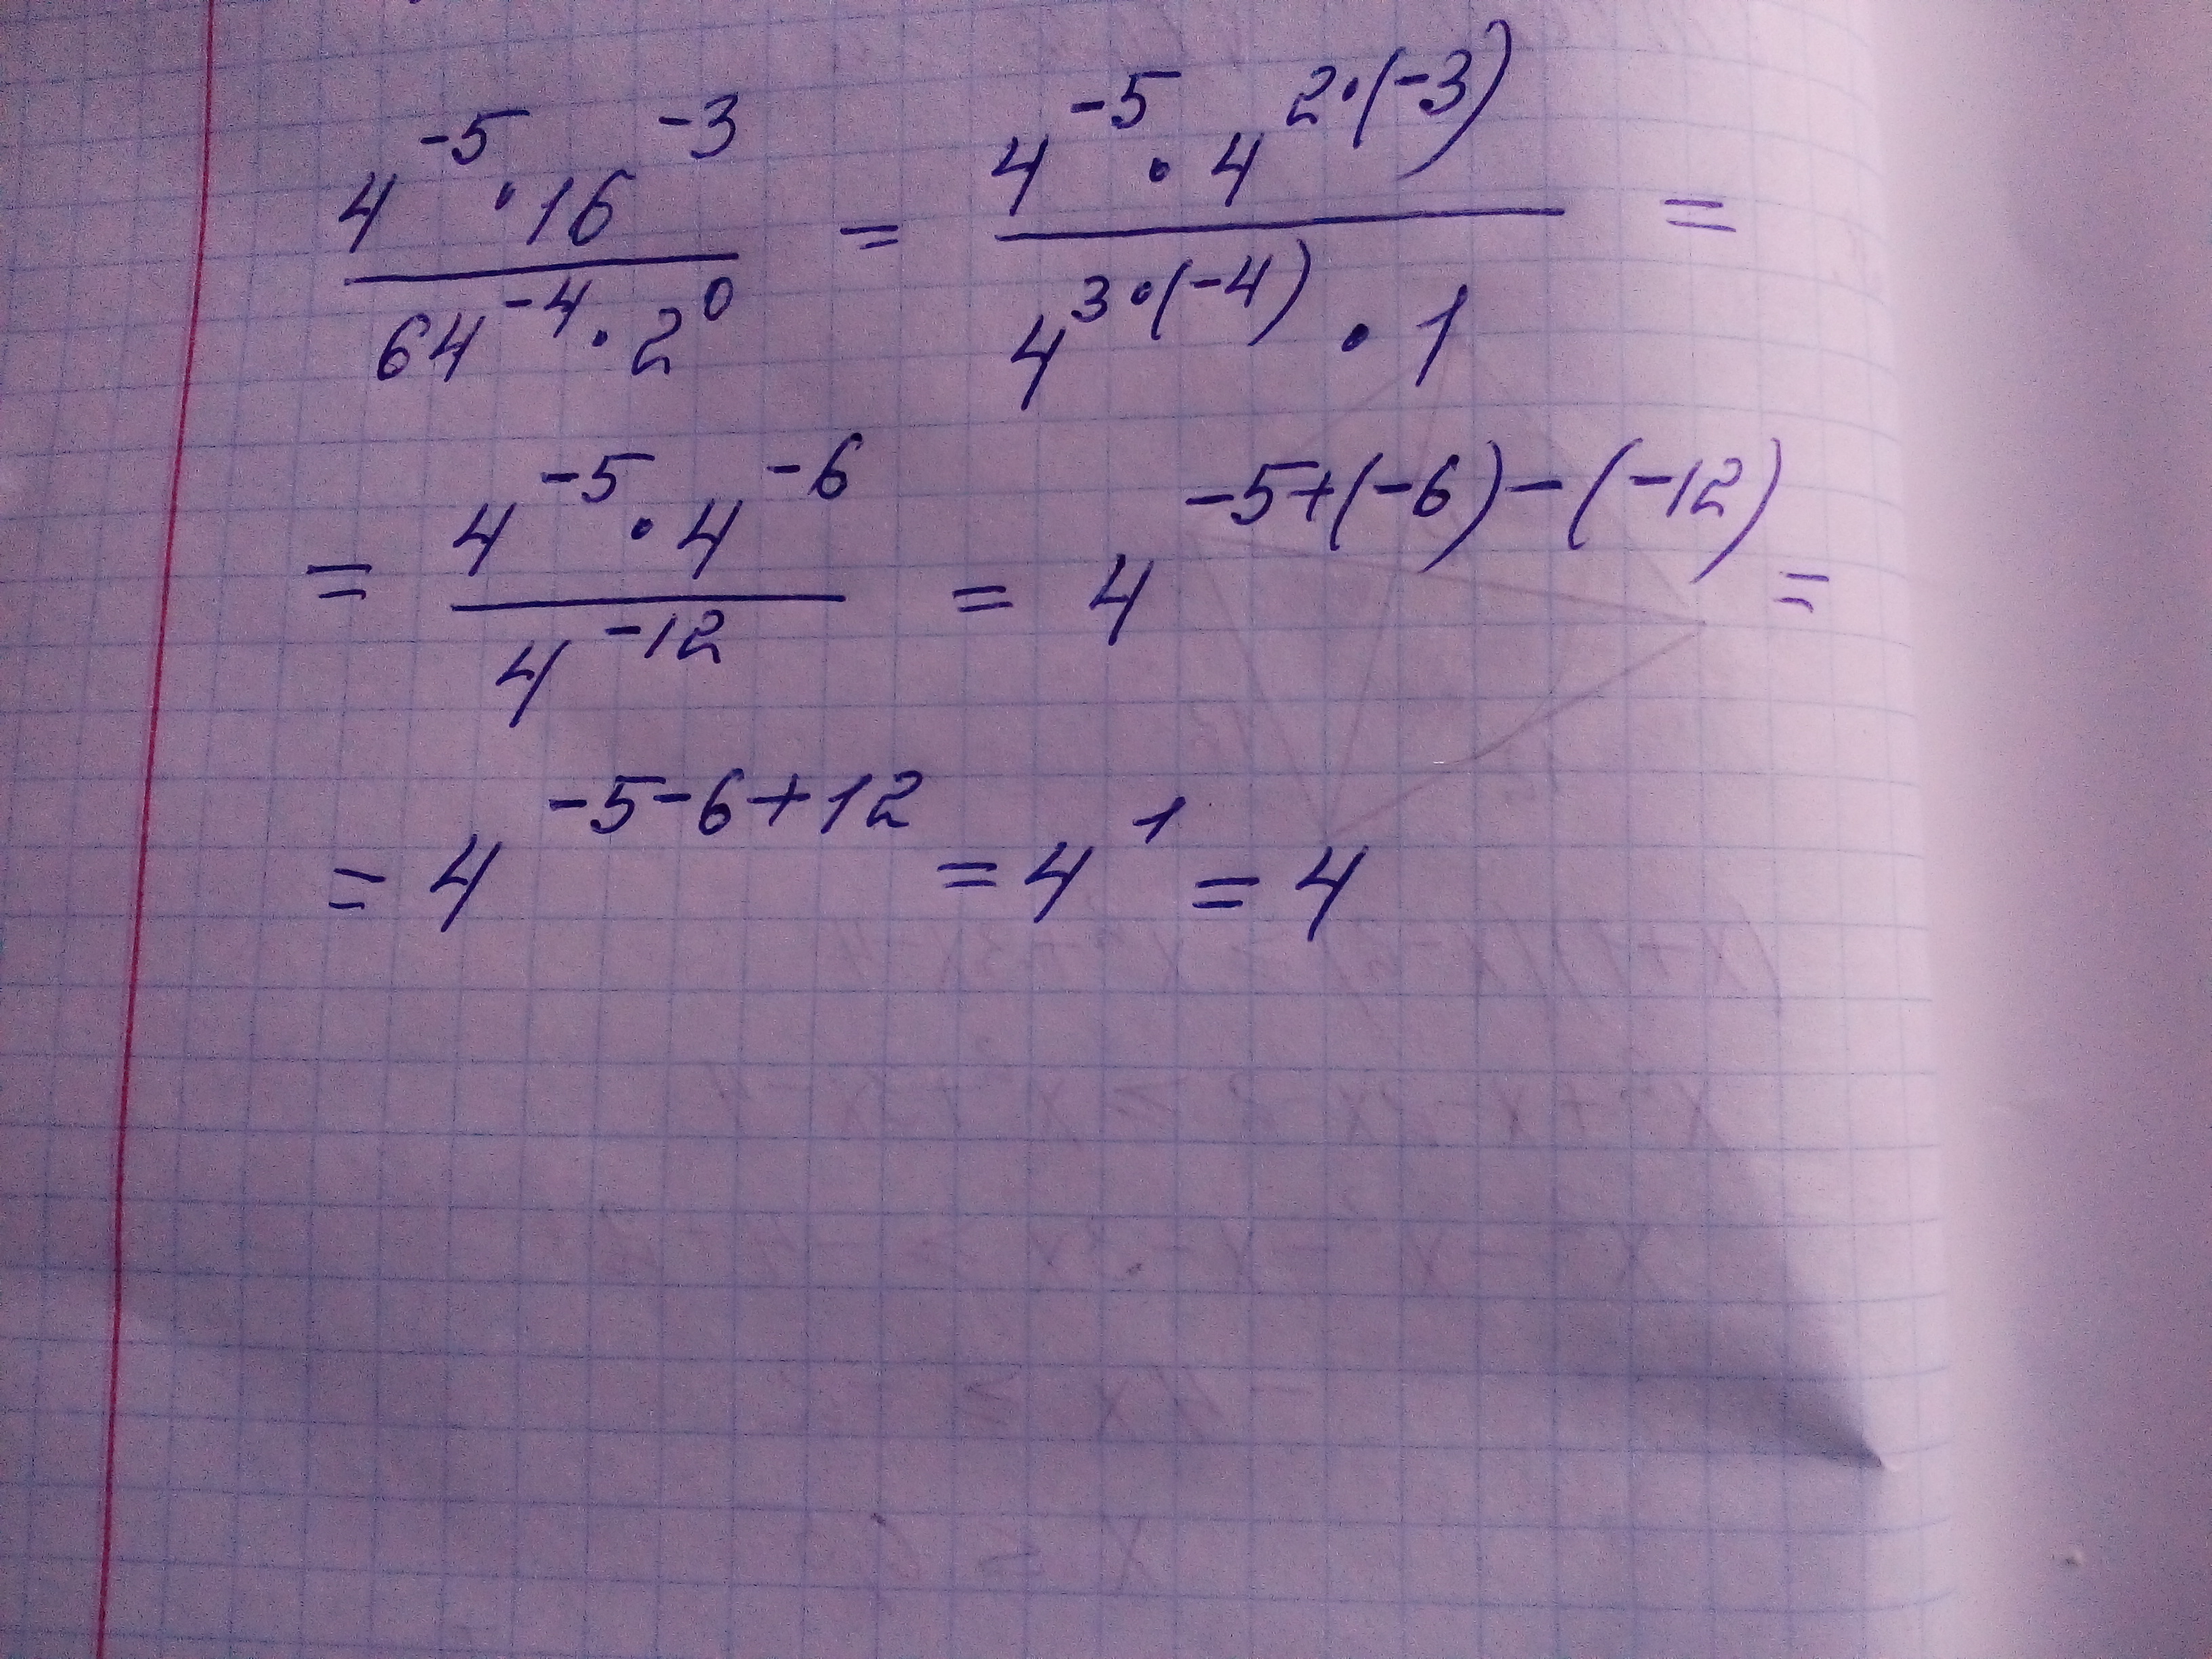 4^-5 · 16^-3 / 64^-4 · 2^0 = 4^-5 · 4^2·(-3) / 4^3·(-4) · 1 =
= 4^-5 · 4^-6 / 4^-12 = 4^-5+(-6)-(-12) =
= 4^-5-6+12 = 4^1 = 4